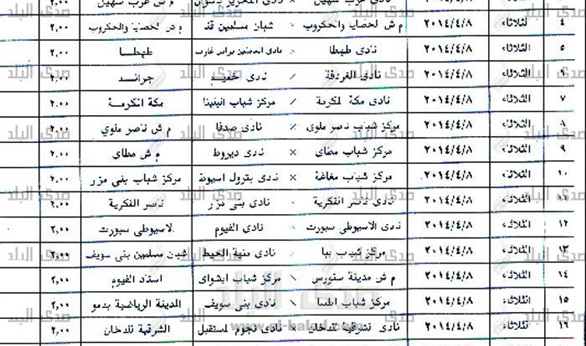 ٤ الثلاثاء ٢٠١٤/٤/٨ م ش الحصايا والحكروب × شبان مسلمين قنا م ش الحصايا والحكروب ٢,٠٠
٥ الثلاثاء ٢٠١٤/٤/٨ نادى طهطا × نادى برأس غارب طهطا ٢,٠٠
٦ الثلاثاء ٢٠١٤/٤/٨ نادى الغردقة × نادى ٢,٠٠
٧ الثلاثاء ٢٠١٤/٤/٨ نادى مكة المكرمة × مركز شباب البلينا مكة المكرمة ٢,٠٠
٨ الثلاثاء ٢٠١٤/٤/٨ مركز شباب ناصر ملوى × نادى صدفا م ش ناصر ملوي ٢,٠٠
٩ الثلاثاء ٢٠١٤/٤/٨ مركز شباب مطاى × نادى ديروط م ش مطاي ٢,٠٠
١٠ الثلاثاء ٢٠١٤/٤/٨ مركز شباب مغاغة × نادى بترول اسيوط مركز شباب بنى مزار ٢,٠٠
١١ الثلاثاء ٢٠١٤/٤/٨ نادى ناصر الفكرية × نادى بنى مزار ناصر الفكرية ٢,٠٠
١٢ الثلاثاء ٢٠١٤/٤/٨ نادى الاسيوطى سبورت × نادى الفيوم الاسيوطى سبورت ٢,٠٠
١٣ الثلاثاء ٢٠١٤/٤/٨ مركز شباب ببا × نادى منية الحيط شبان مسلمين بنى سويف ٢,٠٠
١٤ الثلاثاء ٢٠١٤/٤/٨ م ش مدينة سنورس × مركز شباب ابشواى استاد الفيوم ٢,٠٠
١٥ الثلاثاء ٢٠١٤/٤/٨ مركز شباب اطسا × نادى بنى سويف المدينة الرياضية بدمو ٢,٠٠
١٦ الثلاثاء ٢٠١٤/٤/٨ نادى الشرقية للدخان × نادى نجوم المستقبل الشرقية للدخان ٢,٠٠
صدى البلد